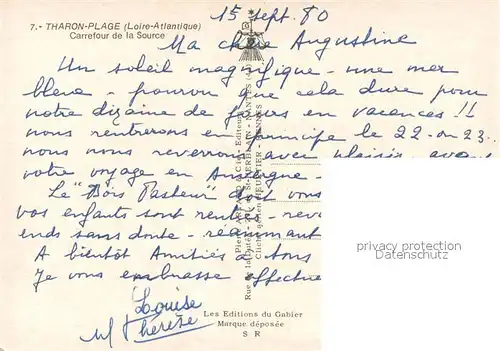 15 sept. 80
7.- THARON-PLAGE (Loire-Atlantique)
Carrefour de la Source
Ma chère Augustine
Un soleil magnifique - une mer
bleue - pourvu que cela dure pour
notre dizaine de jours en vacances !!
nous rentrerons en principe le 22 ou 23
nous nous reverrons avec plaisir avant
votre voyage en Auvergne -
Le "Bois Pasteur" doit vous
vos enfants sont
ends sans doute -
A bientôt Amitiés à tous
Je vous embrasse
Louise
Thérèse
Les Editions du Gabier
Marque déposée
S R
privacy protection
Datenschutz